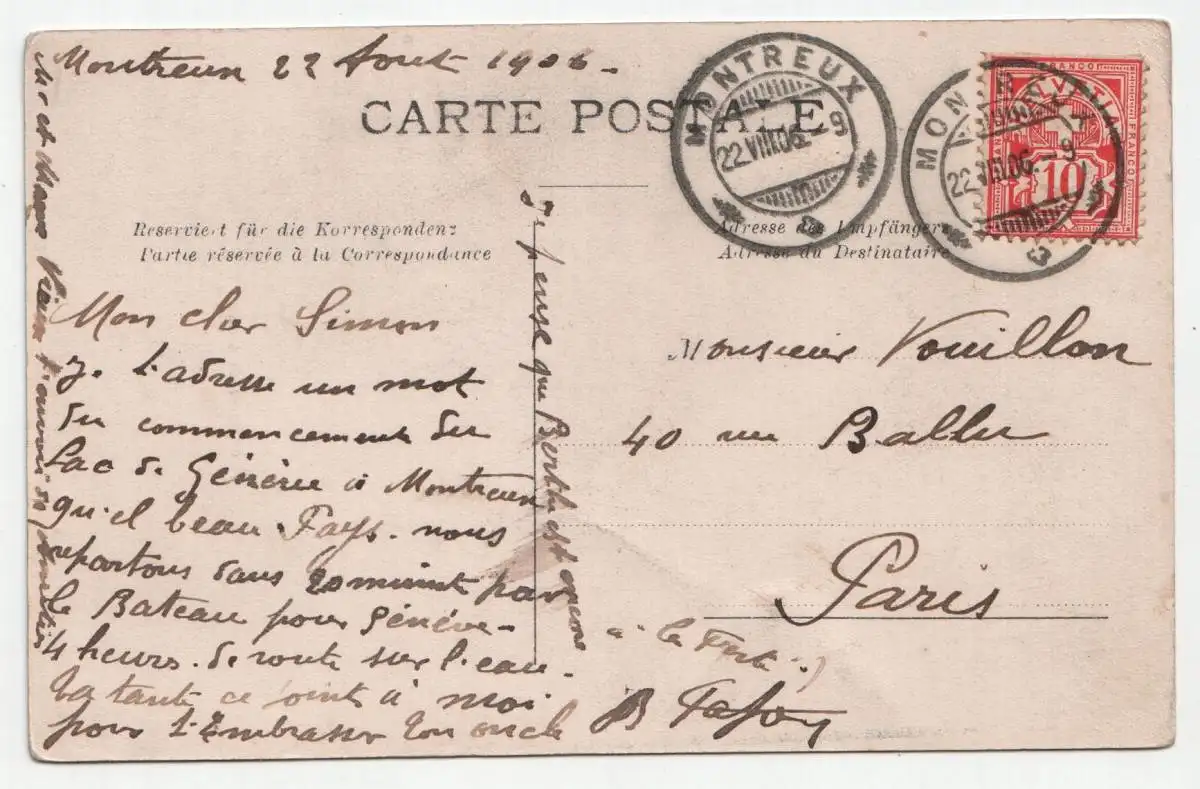 Montreux 22 Aout 1906 -
CARTE POSTALE
MONTREUX
22.VIII.06.-9
3
MONTREUX
22.VIII.06.-9
3
FRANCO
HELVETIA
FRANCO
10
Reserviert für die Korrespondenz
Partie réservée à la Correspondance
Adresse des Empfängers
Adresse du Destinataire
Mon cher Simon
Je t'adresse un mot
du commencement du
Lac de Génève à Montreux
qu'el beau Pays. nous
repartons dans 20 minut par
le Bateau pour Génève -
4 heures. de route sur l'eau.
ta tante ce joint à moi
pour t'Embrasser ton oncle
Je pense que Berthe est encore
à la
B
Mr et Mame
Monsieur Vouillon
40 rue Ballu
Paris